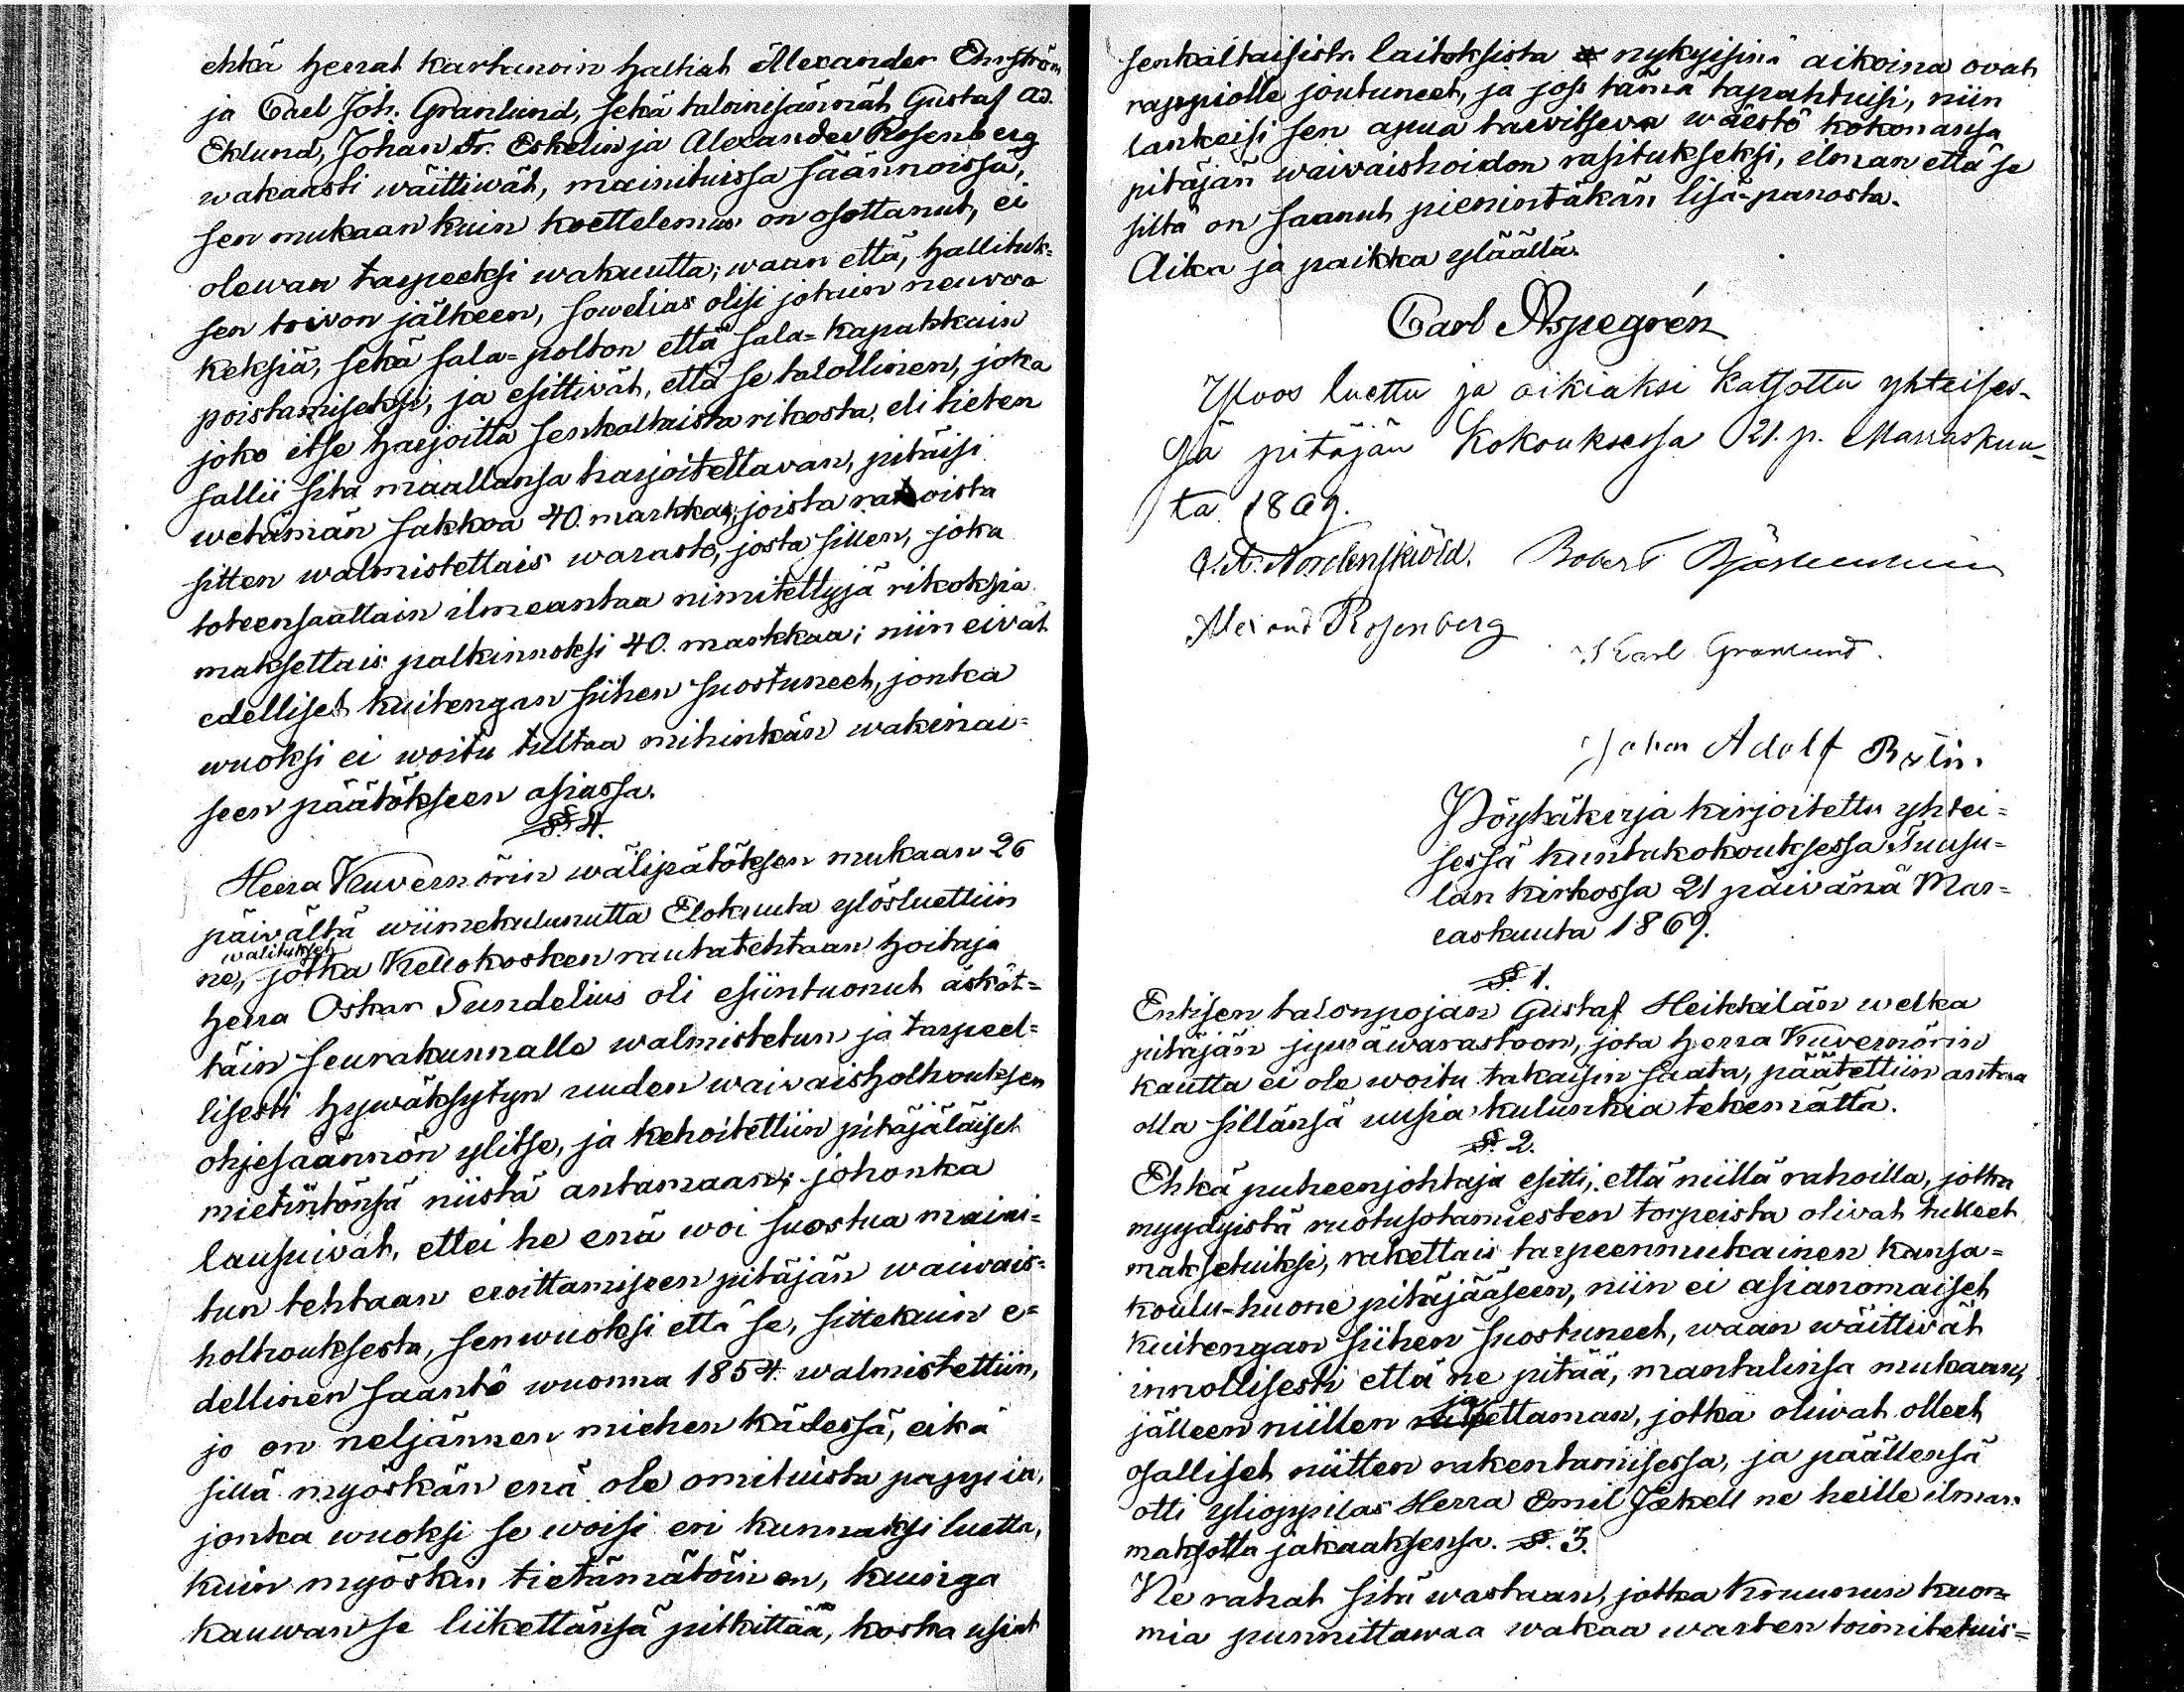 ehkä herrat kartanoin haltiat Alexander Ehnström
ja Carl Joh. Granlund, sekä taloinisännät Gustaf Ad.
Eklund, Johan Fr. Eskelin ja Alexander Rosenberg
wakaasti wäittiwät, mainituissa säännoissä,
sen mukaan kuin koettelemus on osottanut, ei
olewan tarpeeksi wakuutta; waan että, hallituk=
sen toiwon jälkeen, sowelias olisi jotain neuwoa
keksiä, sekä sala=polton että sala=kapakkain
poistamiseksi, ja esittivät, että se talollinen, joka
joko itse harjoitta senkaltaista rikosta, eli tieten
sallii sitä maallansa harjoitettavan, pitäisi
wetämän sakkoa 40. markkaa, joista rahoista
sitten walmistettais warasto, josta sillen, joka
toteensaattain ilmeantaa nimitettyjä rikoksia
maksettais palkinnoksi 40. markkaa; niin eivät
edelliset kuitengan siihen suostuneet, jonka
wuoksi ei woitu tultaa mihinkän wakinai=
seen päätökseen asiassa.
§. 4.
Herra Kuvernörin wälipätöksen mukaan 26
päivältä wiimekulunutta Elokuuta ylösluettiin
walitukset
ne, jotka Kellokosken rautatehtaan hoitaja
herra Oskar Sundelius oli esiintuonut äsköt=
täin seurakunnalle walmistetun ja tarpeel=
lisesti hywäksytyn uuden waivaisholhouksen
ohjesäännön ylitse, ja kehoitettiin pitäjäläiset
mietintönsä niistä antamaan; johonka
lausuivat, ettei he enä woi suostua maini=
tun tehtaan eroittamiseen pitäjän waiwais=
holhouksesta, senwuoksi että se, sittekuin e=
dellinen saanto wuonna 1854. walmistettiin,
jo on neljännen miehen kädessä, eikä
sillä myöskän enä ole omituista pappia,
jonka wuoksi se woisi eri kunnaksi luetta,
kuin myöskin tietämätöin on, kuinga
kauwan se liikettänsä pitkittää, koska usiat
senkaltaisista laitoksista nykyisinä aikoina ovat
rappiolle joutuneet, ja joss tämä tapahtuisi, niin
lankeisi sen apua tarvitseva wäestö kokonansa
pitäjän waivaishoidon rasitukseksi, ilman että se
siltä on saanut pienintäkän lisä=panosta.
Aika ja paikka yläällä.
Carl Aspegrén
Ylös luettu ja oikiaksi katsottu yhteises-
sä pitäjän Kokouksessa 21. p. Marraskuu-
ta 1869.
A. Nordenskiöld. Robert
Rosenberg
Karl Granlund.
Johan Adolf
Pöytäkirja kirjoitettu yhtei=
sessä kuntakokouksessa Tuusu=
lan kirkossa 21 päivänä Mar=
raskuuta 1869.
§. 1.
Entisen talonpojan Gustaf Heikkilän welka
pitäjän jywäwarastoon, jota herra Kuvernörin
kautta ei ole woitu takaisin saata, päätettiin antaa
olla sillänsä uusia kulunkia tekemättä.
§. 2.
Ehkä puheenjohtaja esitti, että niillä rahoilla, jotka
myydyistä ruotusotamiesten torpeista olivat tulleet
maksetuiksi, rakettais tarpeenmukainen kansa=
koulu-huone pitäjääseen, niin ei asianomaiset
kuitengan siihen suostuneet, waan wäittivät
innollisesti että ne pitää, mantalinsa mukaan,
ja
jälleen niillen ettaman, jotka oliwat olleet
osalliset niitten rakentamisessa, ja päällensä
otti ylioppilas Herra Emil Jækell ne heille ilman
maksotta jakaaksensa. §. 3.
Ne rahat sitä wastaan, jotka Kruunun kuor=
mia punnittawaa wakaa warten toimitetuis=